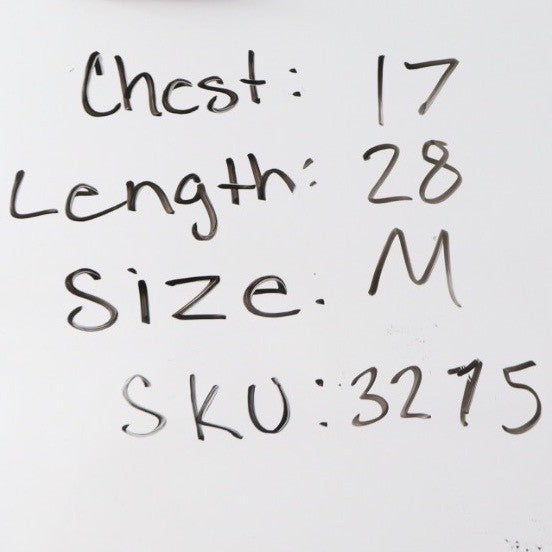 Chest: 17
Length: 28
Size: M
SKU: 3275